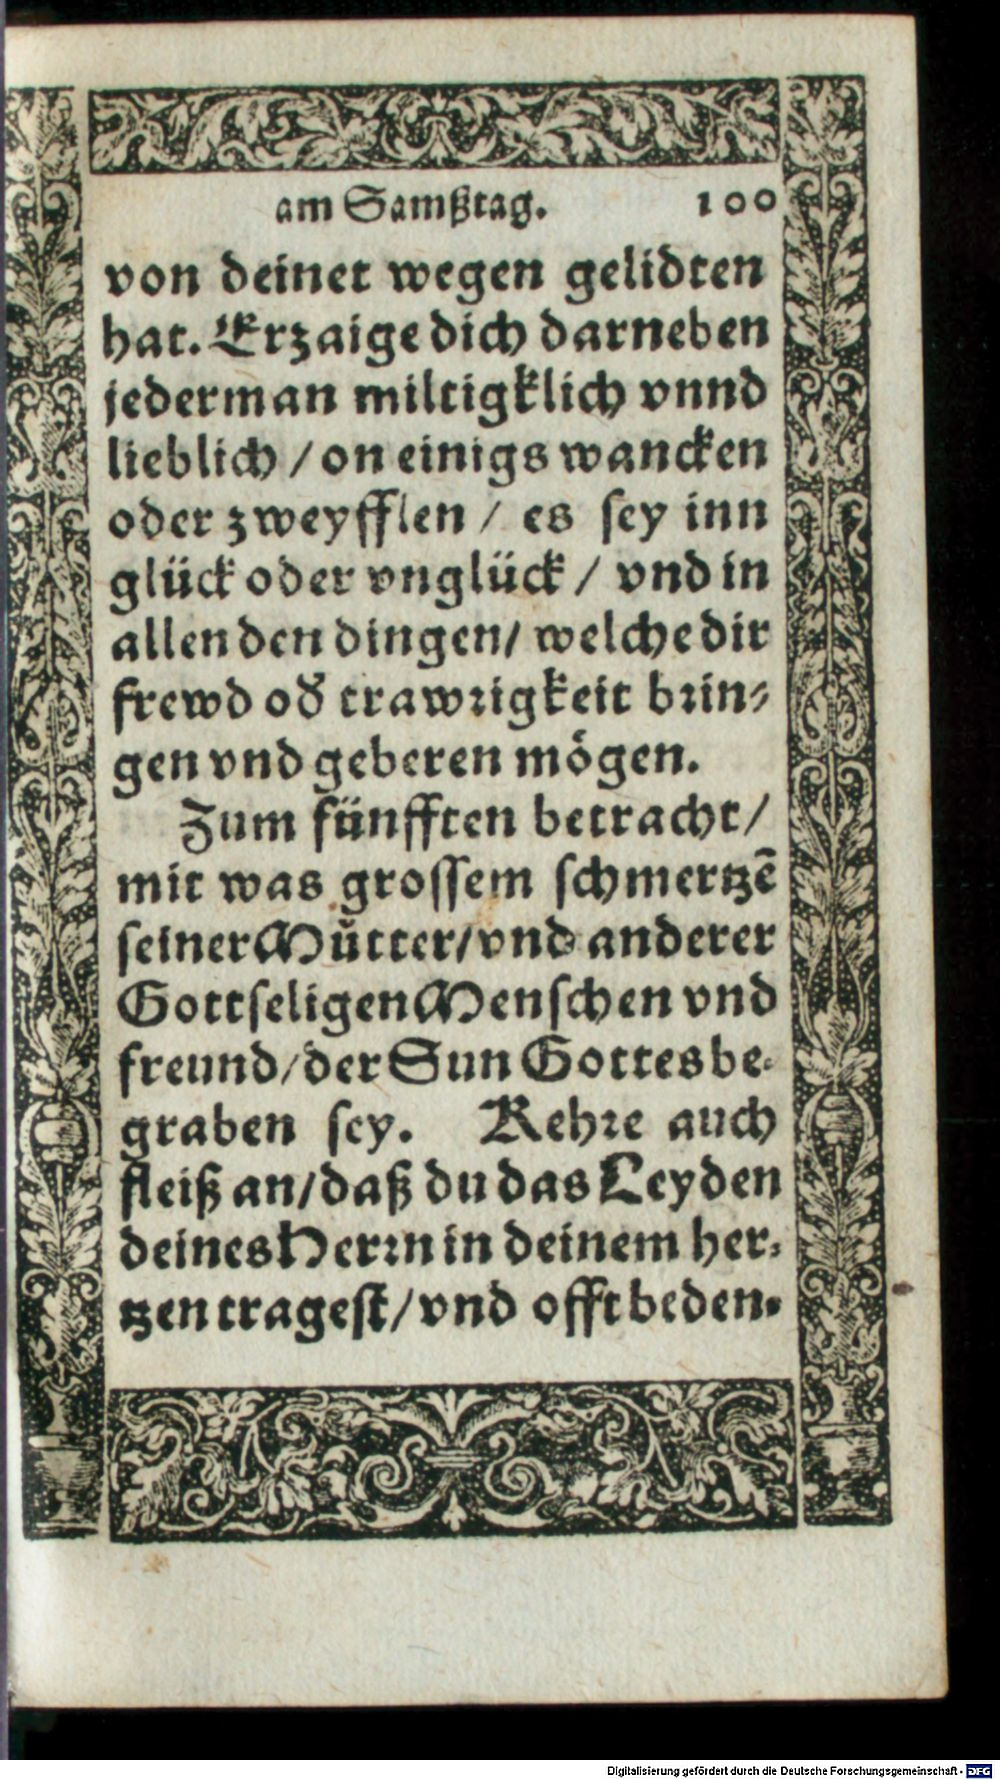 am Samßtag. 100
von deinet wegen gelidten
hat. Erzaige dich darneben
jederman miltigklich vnnd
lieblich / on einigs wancken
oder zweyfflen / es sey inn
glück oder vnglück / vnd in
allen den dingen / welche dir
frewd od̕ trawrigkeit brin-
gen vnd geberen mögen.
Zum fünfften betracht /
mit was grossem schmertzē
seiner Můtter / vnd anderer
Gottseligen Menschen vnd
freund / der Sun Gottes be-
graben sey. Kehre auch
fleiß an / daß du das Leyden
deines Herrn in deinem her-
tzen tragest / vnd offt beden-
Digitalisierung gefördert durch die Deutsche Forschungsgemeinschaft - DFG